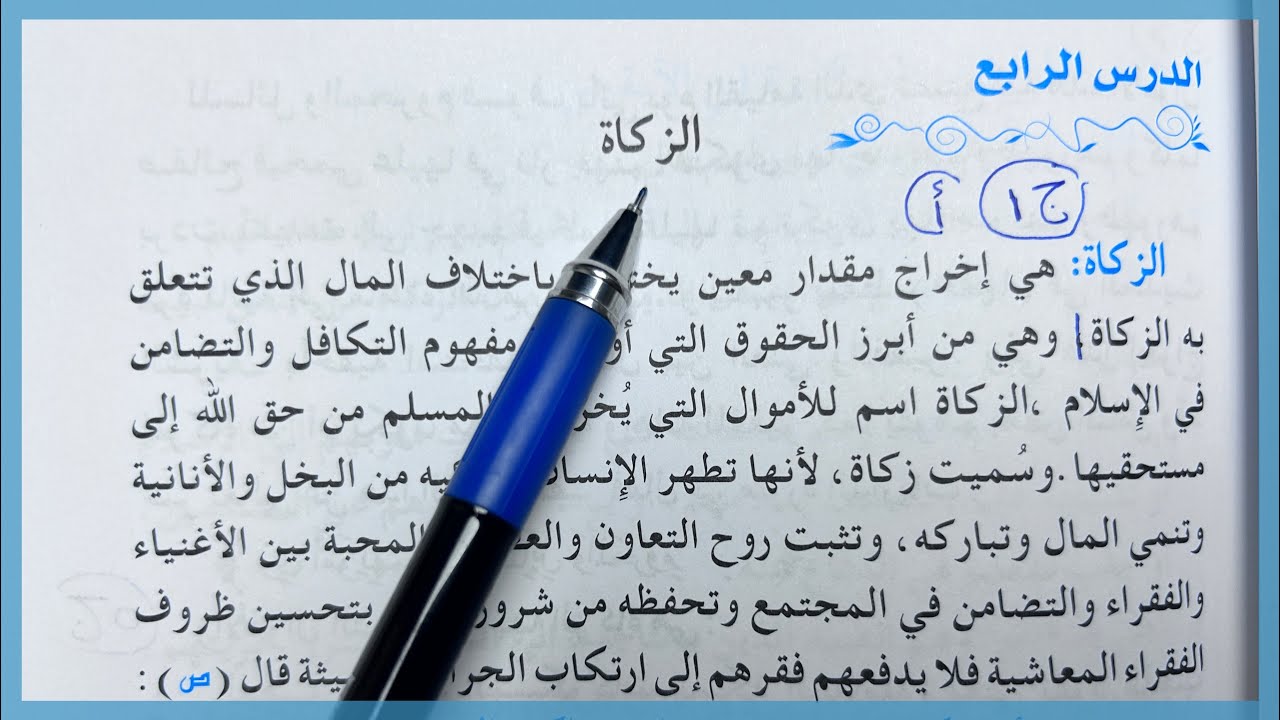 الدرس الرابع
الزكاة
ج١ أ
الزكاة: هي إخراج مقدار معين باختلاف المال الذي تتعلق
به الزكاة وهي من أبرز الحقوق التي مفهوم التكافل والتضامن
في الإسلام ،الزكاة اسم للأموال التي المسلم من حق الله إلى
مستحقيها .وسُميت زكاة، لأنها تطهر من البخل والأنانية
وتنمي المال وتباركه، وتثبت روح التعاون المحبة بين الأغنياء
والفقراء والتضامن في المجتمع وتحفظه من بتحسين ظروف
الفقراء المعاشية فلا يدفعهم فقرهم إلى ارتكاب قال (ص) :